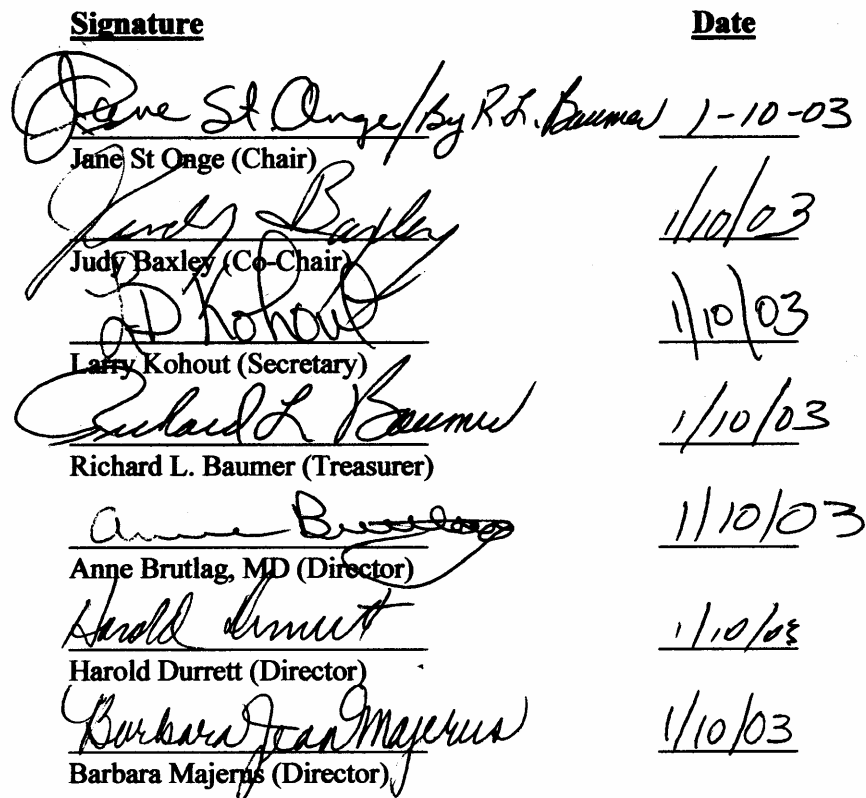 Signature Date
Jane St. Onge/By R.L. Baumer 1-10-03
Jane St Onge (Chair)
Judy Baxley 1/10/03
Judy Baxley (Co-Chair)
LD Kohout 1/10/03
Larry Kohout (Secretary)
Richard L Baumer 1/10/03
Richard L. Baumer (Treasurer)
Anne Brutlag 1/10/03
Anne Brutlag, MD (Director)
Harold Durrett 1/10/03
Harold Durrett (Director)
Barbara Jean Majerus 1/10/03
Barbara Majerus (Director)